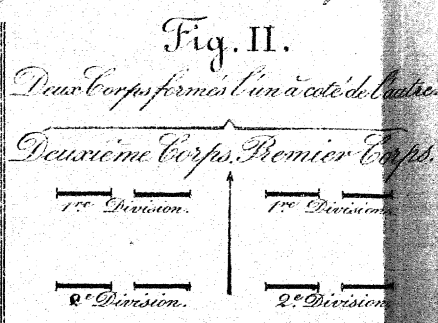 Fig. II.
Deux Corps formés l'un à coté de l'autre.
Deuxième Corps. Premier Corps.
1re Division. 1re Division.
2e Division. 2e Division